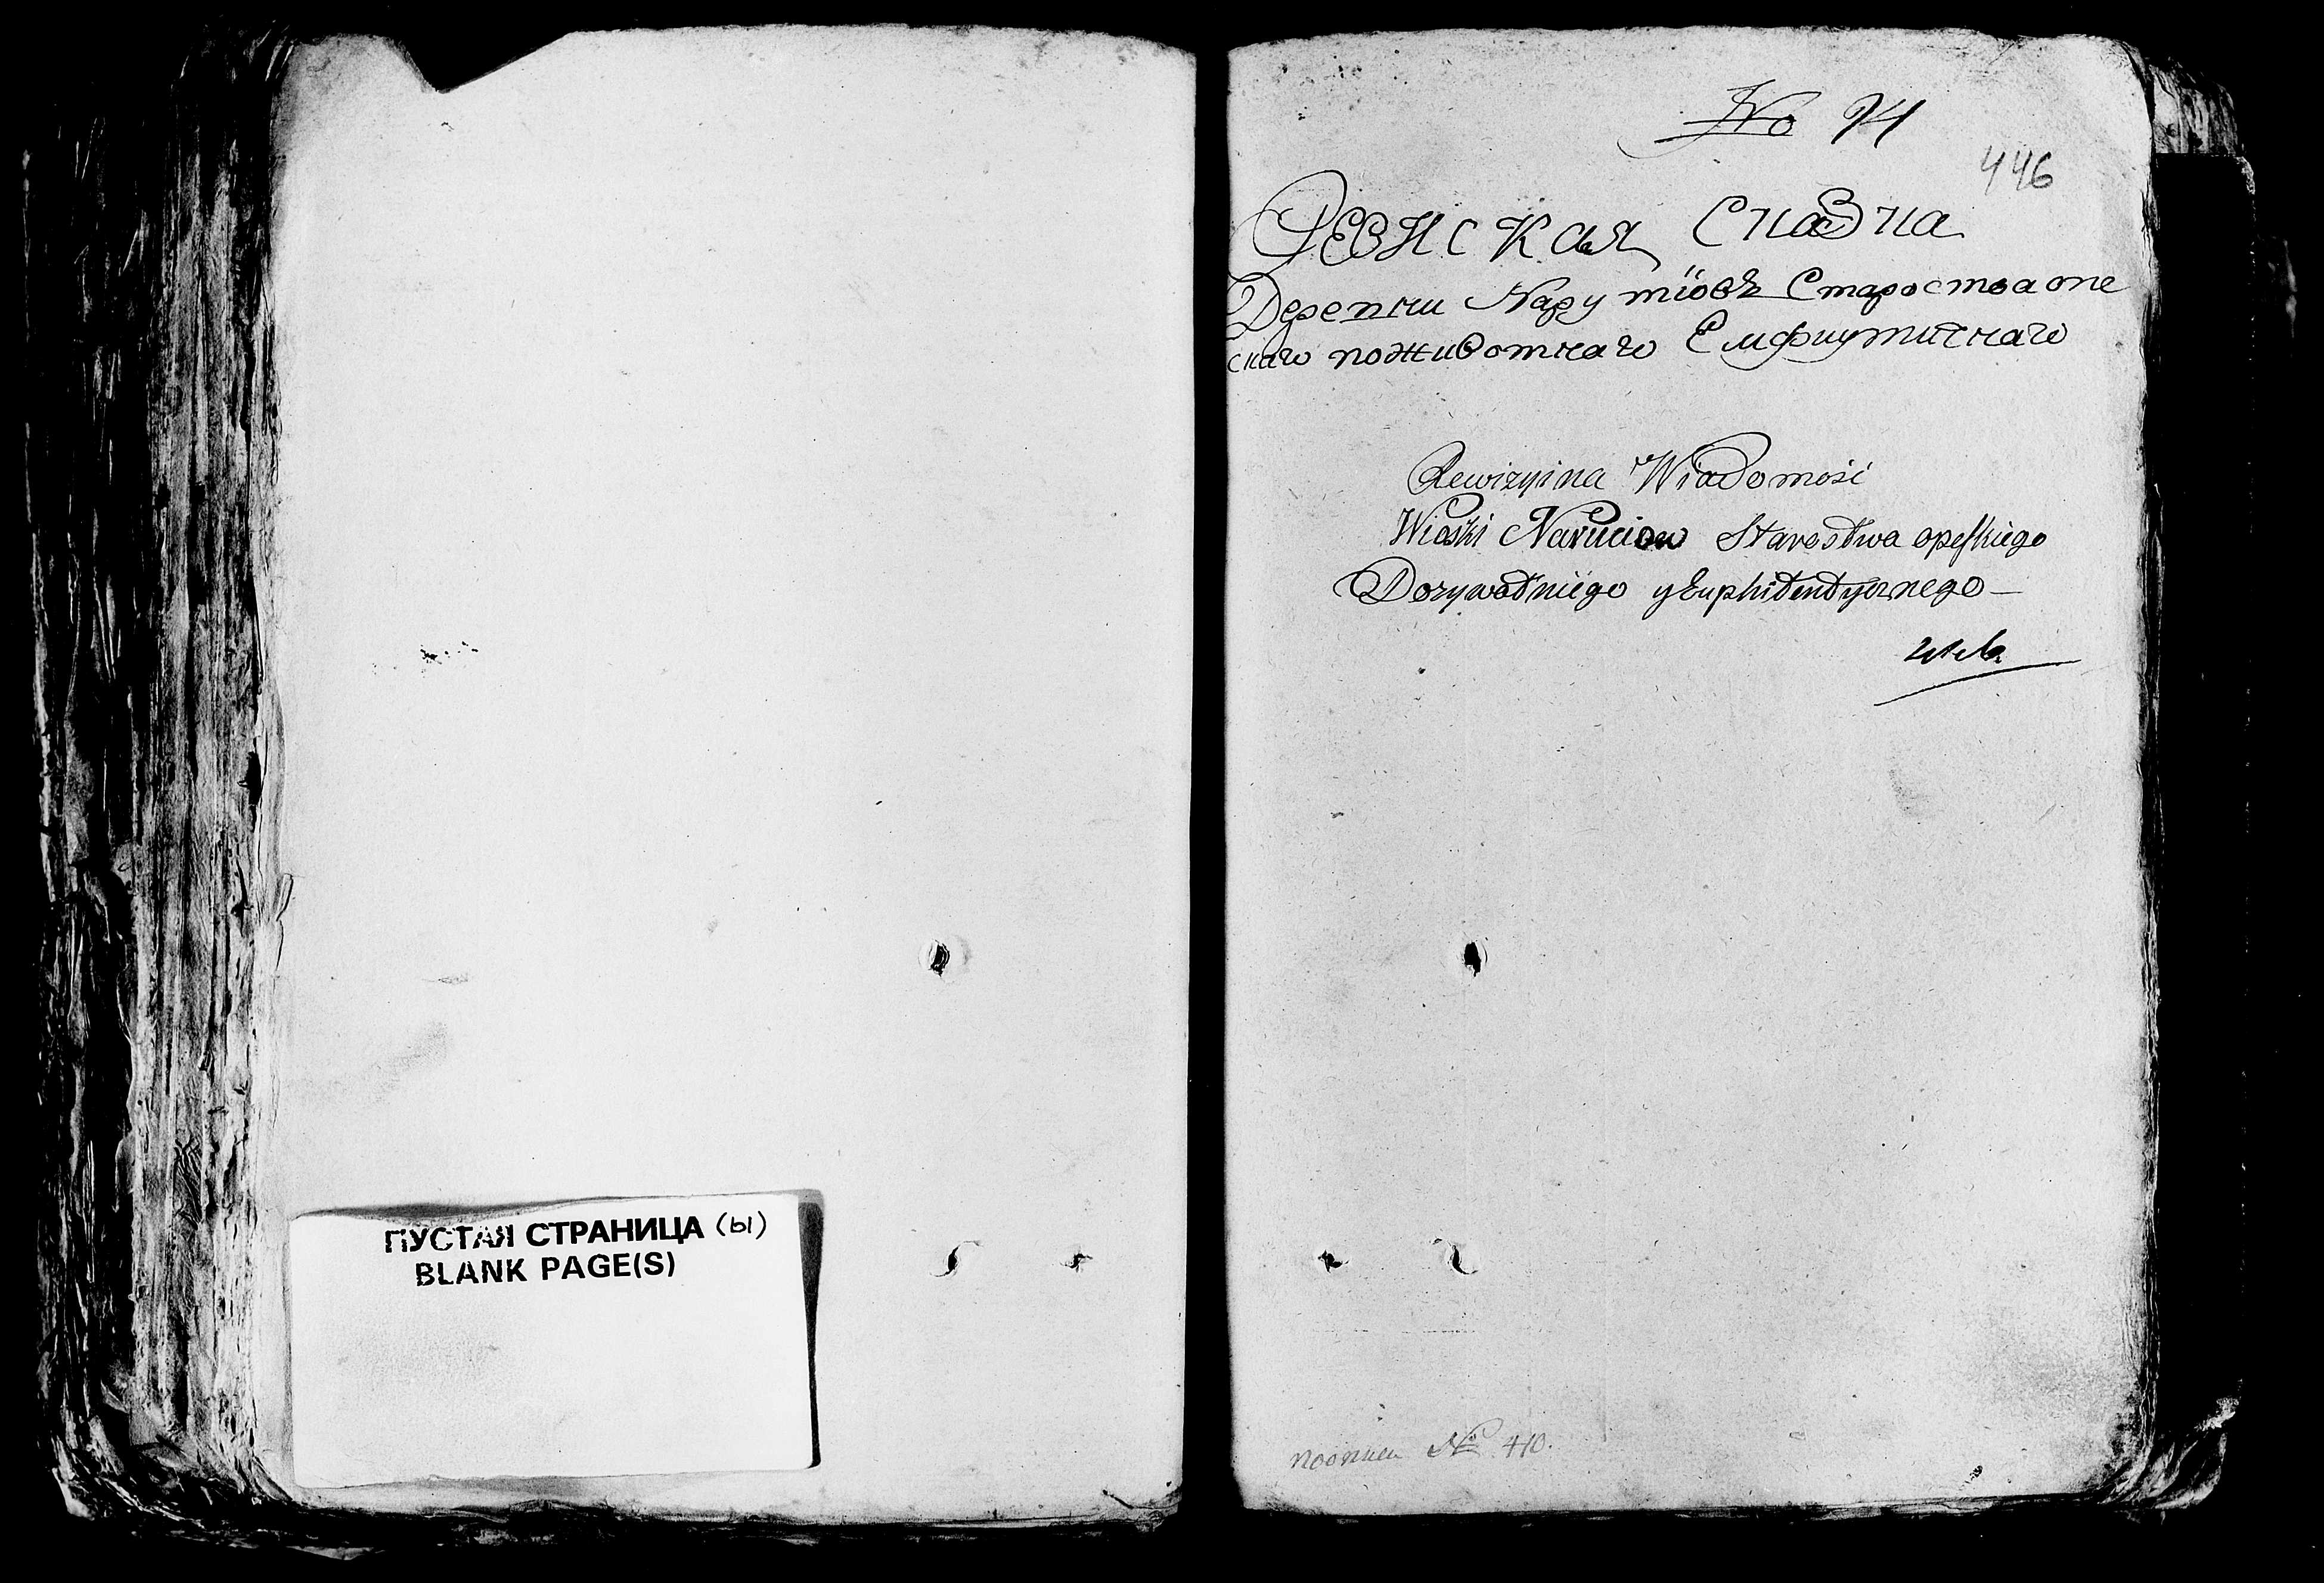 ПУСТАЯ СТРАНИЦА (ы)
BLANK PAGE(S)
No 94
446
Ревиская Сказка
Деревни Нарутіовъ Староства опе
скаго поживотнаго Емфиутичнаго
Rewizyina Wiadomość
Wioski Naruciow Starostwa opeskiego
Dozywotniego y Emphiteutycznego —
№ 410.